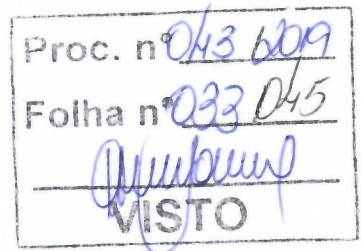 Proc. nº 043/2019
Folha nº 033 045
VISTO